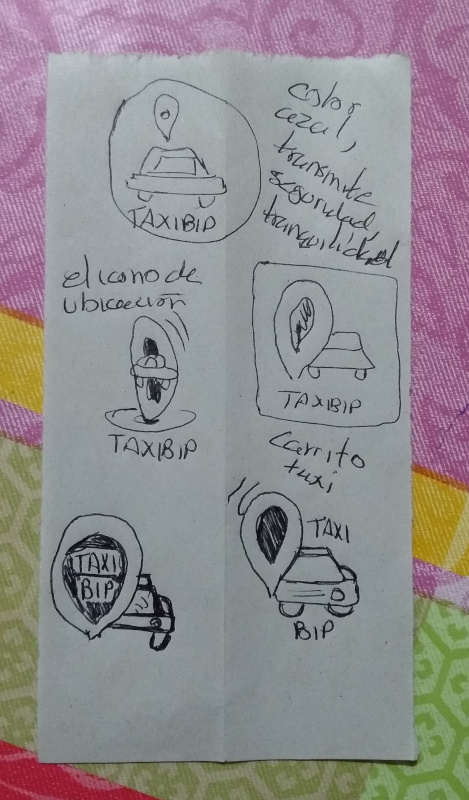 TAXIBIP
color
azul,
transmite
seguridad,
tranquilidad
el icono de
ubicación
TAXIBIP
TAXIBIP
Carrito
taxi
TAXI
BIP
TAXI
BIP